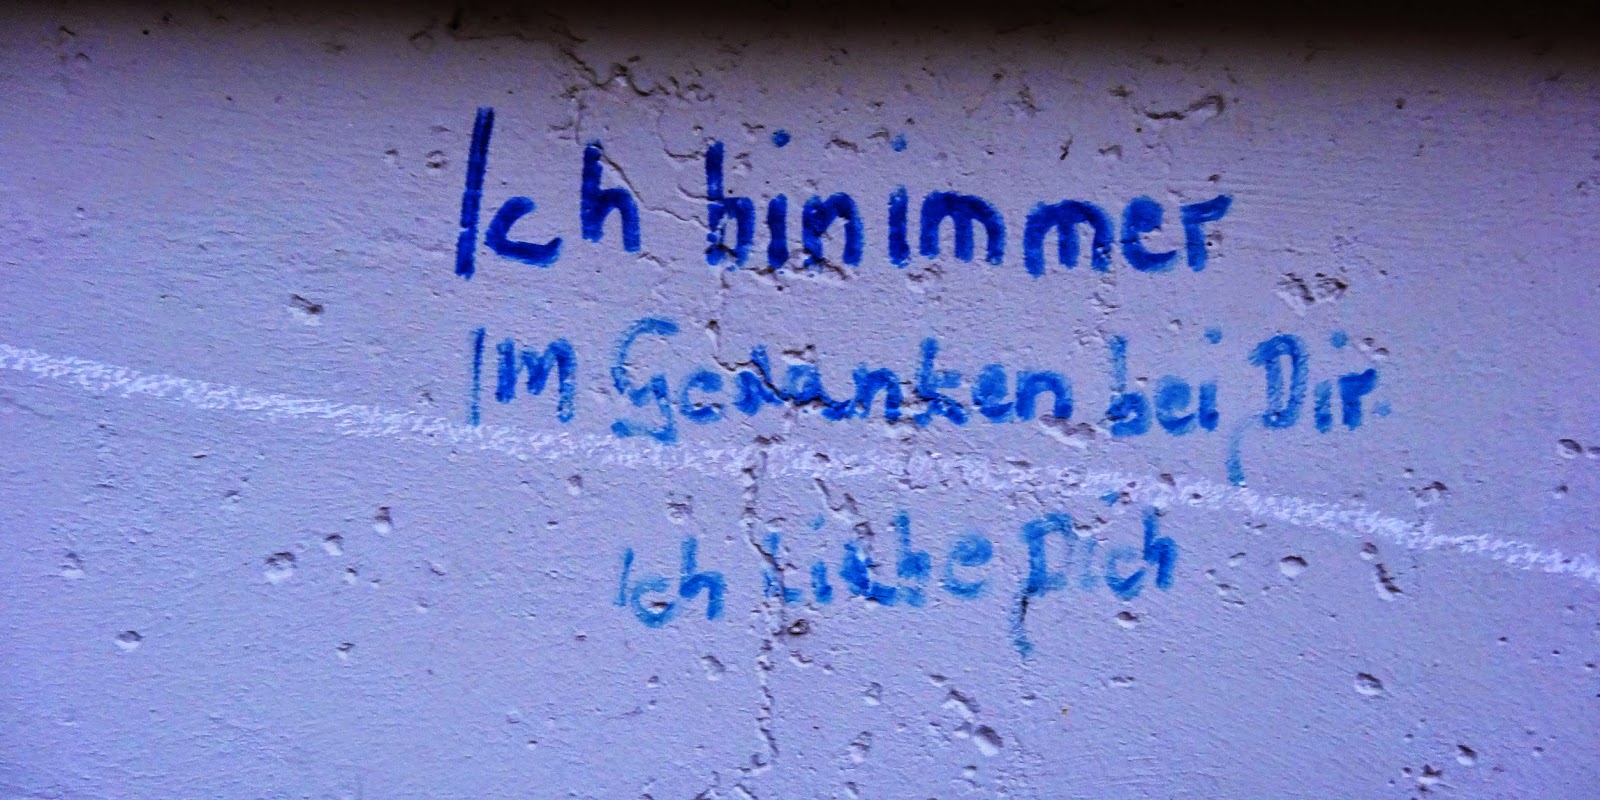 Ich bin immer
Im Gedanken bei Dir.
Ich Liebe Dich